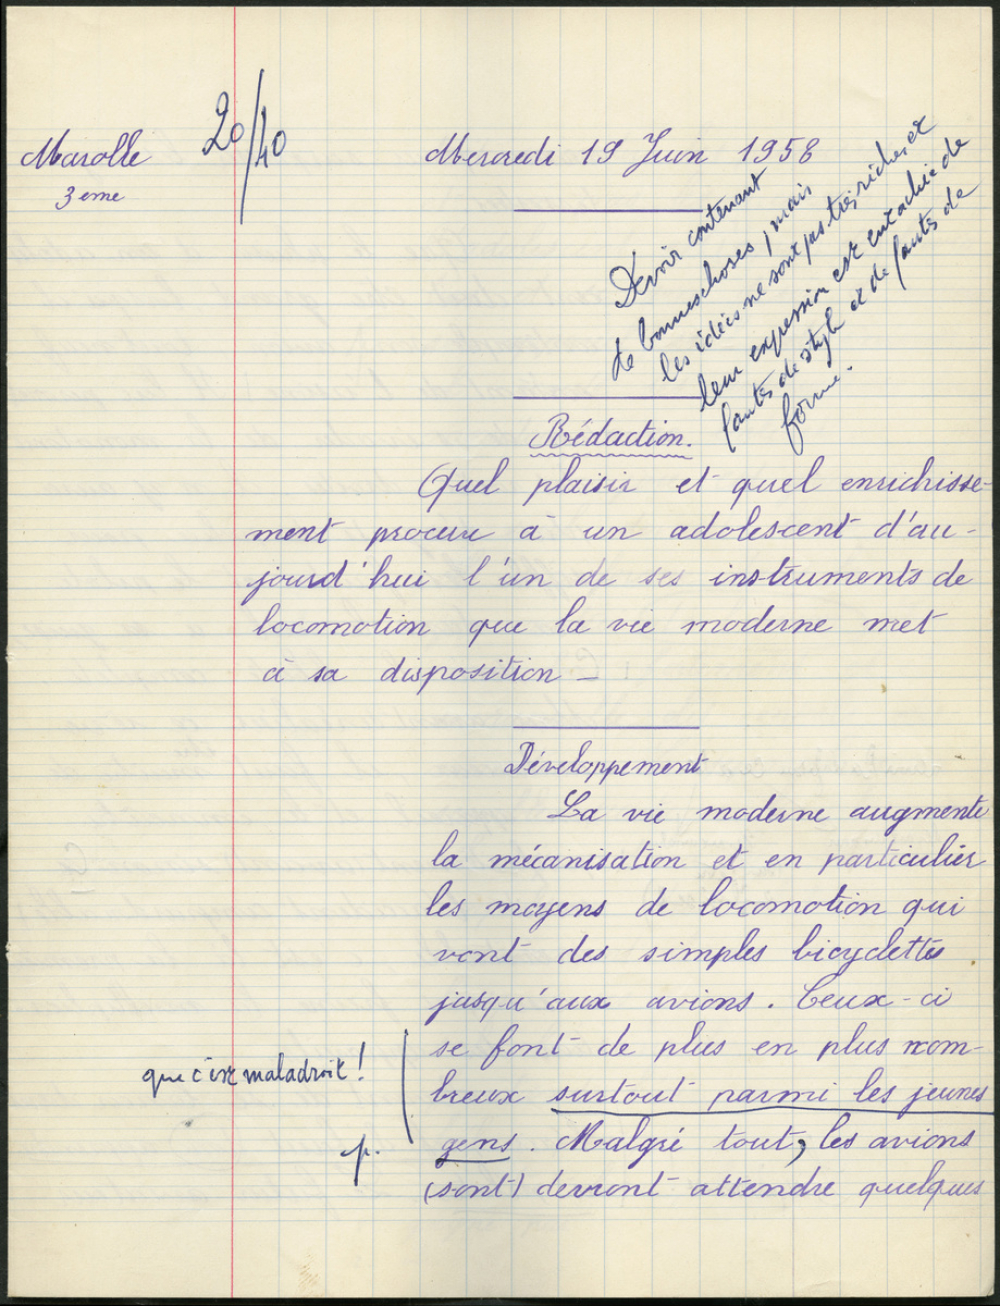 Marolle
3eme
20/40
Mercredi 19 Juin 1958
Devoir contenant
de bonnes choses, mais
les idées ne sont pas très riches et
leur expression est entachée de
fautes de style et de fautes de
forme.
Rédaction.
Quel plaisir et quel enrichisse-
ment procure à un adolescent d'au-
jourd'hui l'un de ses instruments de
locomotion que la vie moderne met
à sa disposition -
Développement
La vie moderne augmente
la mécanisation et en particulier
les moyens de locomotion qui
vont des simples bicyclettes
jusqu'aux avions. Ceux-ci
se font de plus en plus nom-
que c'est maladroit !
breux surtout parmi les jeunes
p.
gens. Malgré tout, les avions
(sont) devront attendre quelques